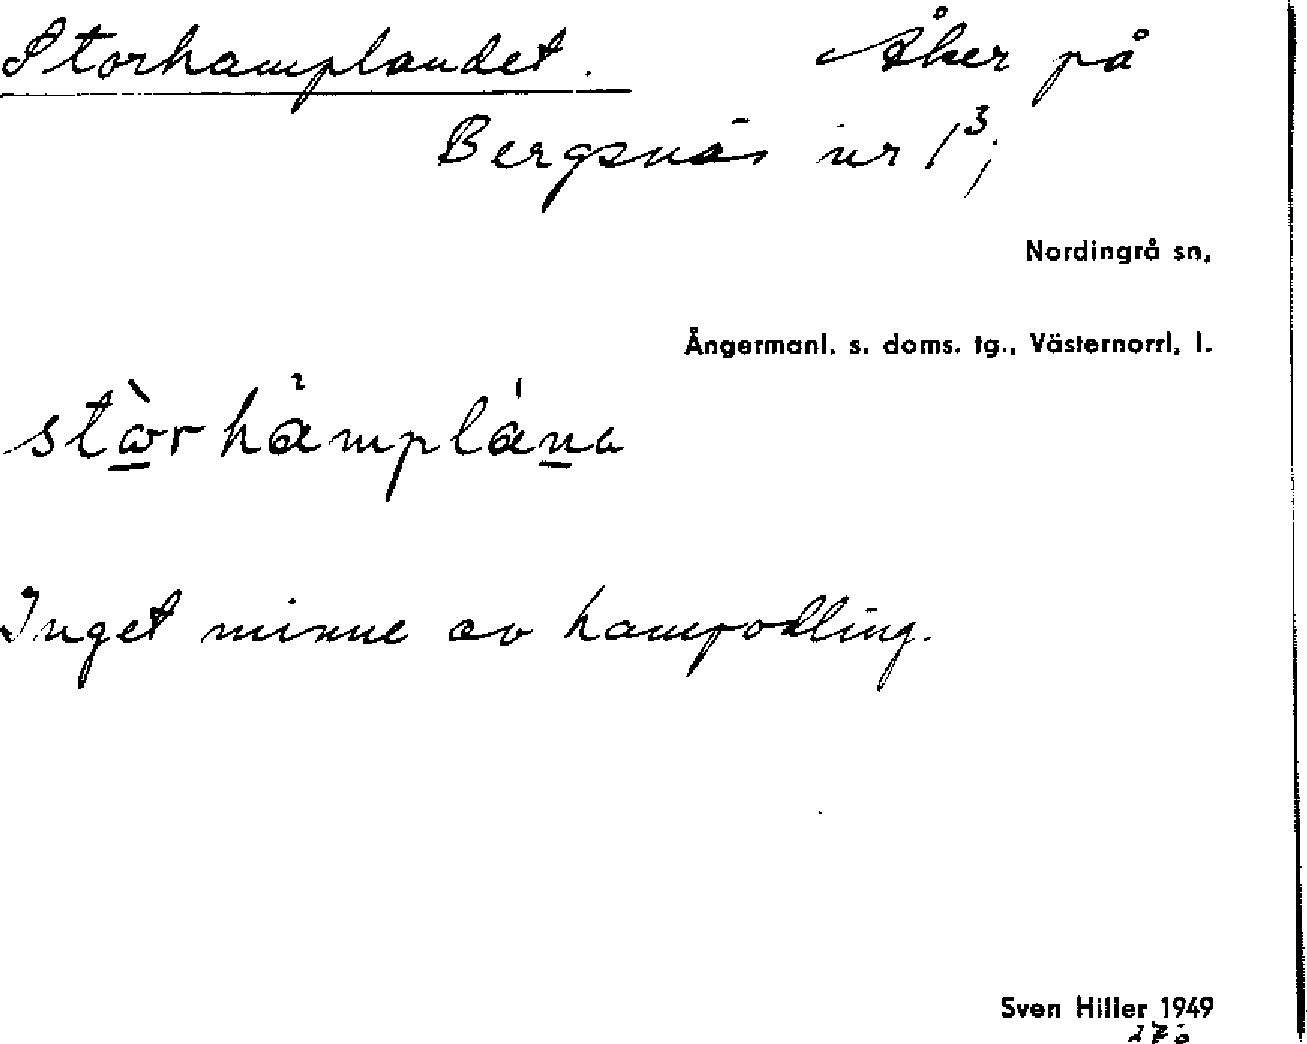 Storhamplandet. Åker på
Bergsnäs nr 1³;
Nordingrå sn,
Ångermanl. s. doms. tg., Västernorrl. l.
Inget minne av hampodling.
Sven Hiller 1949